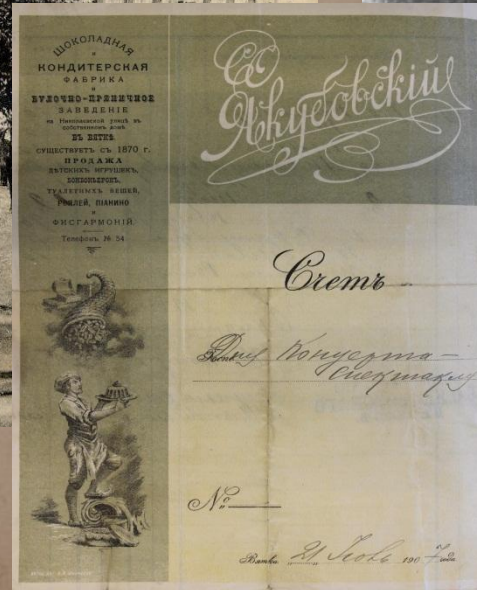 ШОКОЛАДНАЯ
и
КОНДИТЕРСКАЯ
ФАБРИКА
и
БУЛОЧНО-ПРЯНИЧНОЕ
ЗАВЕДЕНІЕ
на Николаевской улицѣ въ
собственномъ домѣ
ВЪ ВЯТКѢ.
СУЩЕСТВУЕТЪ СЪ 1870 г.
ПРОДАЖА
ДѢТСКИХЪ ИГРУШЕКЪ,
БОНБОНЬЕРОКЪ,
ТУАЛЕТНЫХЪ ВЕЩЕЙ,
РОЯЛЕЙ, ПІАНИНО
и
ФИСГАРМОНІЙ.
Телефонъ № 54.
Якубовскій
Счетъ
Для Концерта-
спектакля
№
Вятка 21 Іюнь 1907 года